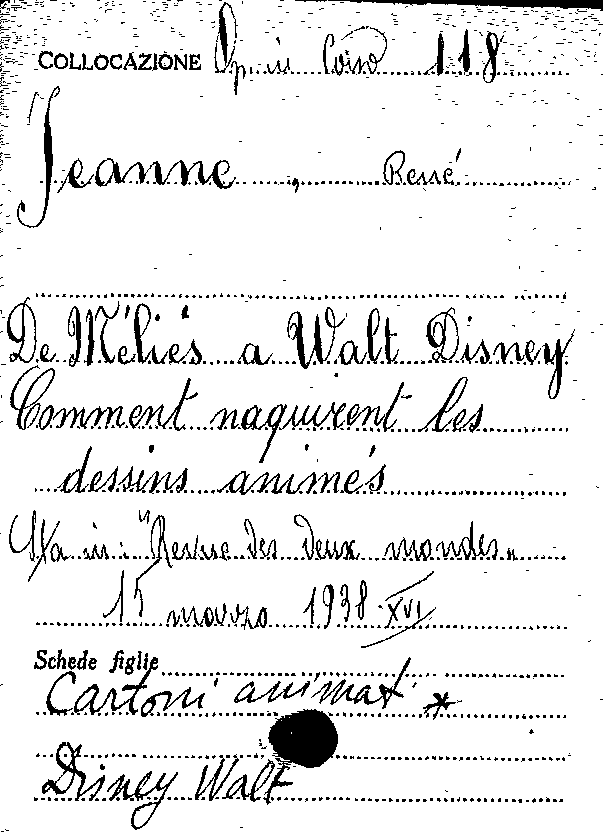 COLLOCAZIONE Op. in Corso 118
Jeanne, René
De Méliès a Walt Disney
Comment naquirent les
dessins animés
Sta in: "Revue des deux mondes"
15 marzo 1938-XVI
Schede figlie
Cartoni animati *
Disney Walt